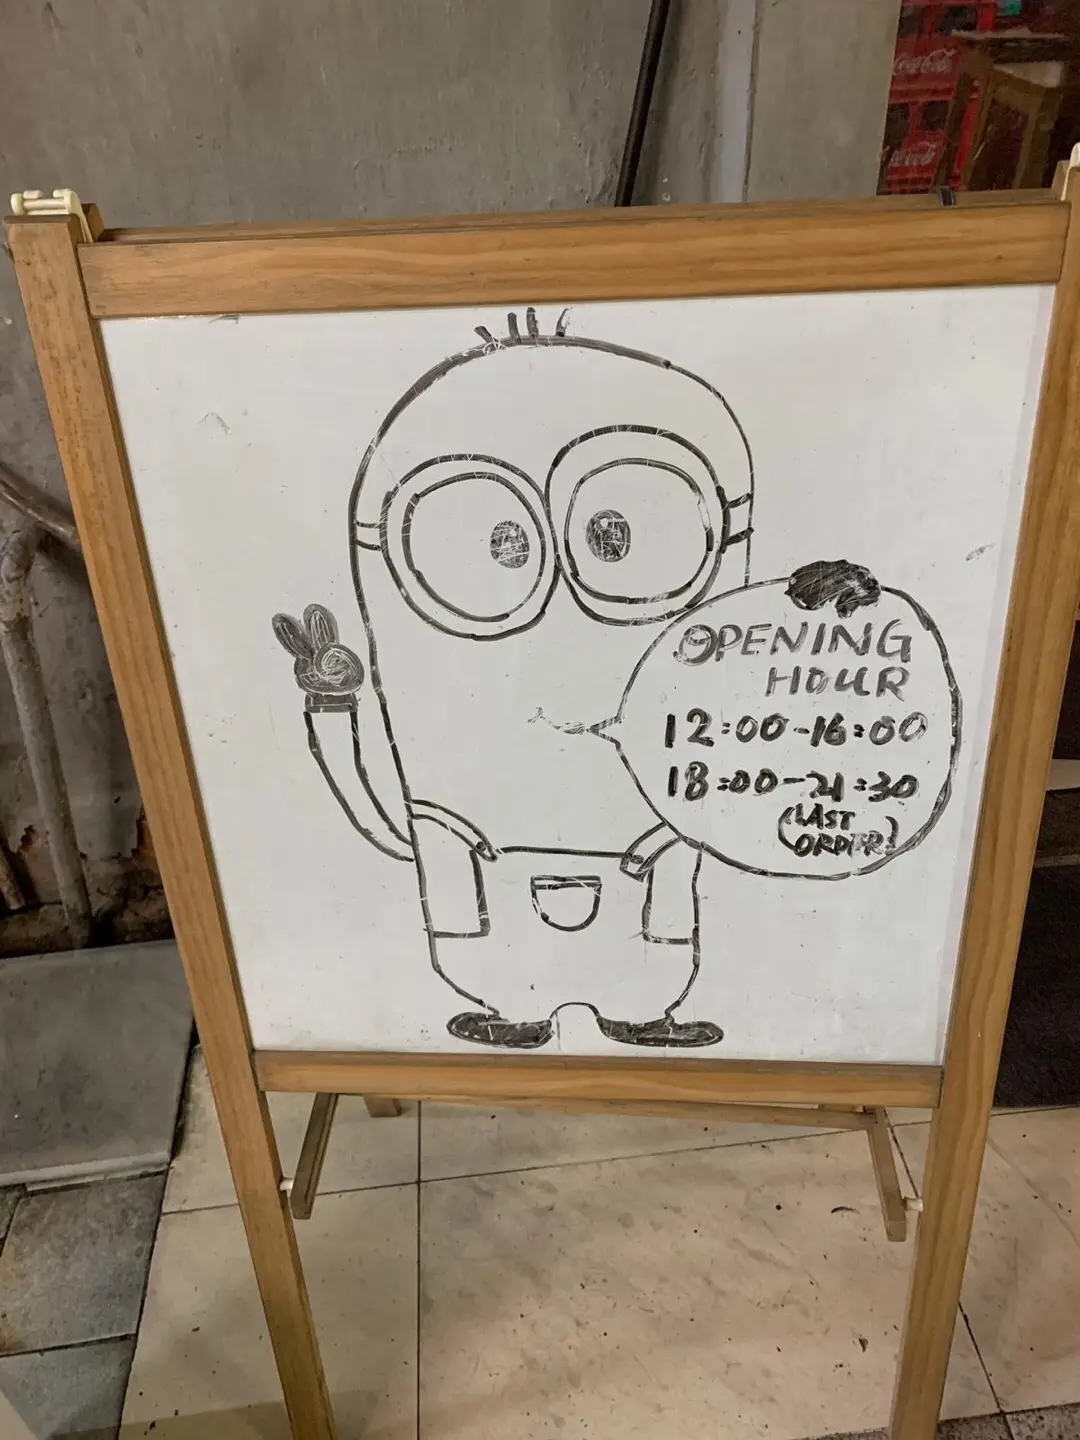 Coca-Cola
Coca-Cola
OPENING
HOUR
12:00-16:00
18:00-21:30
(LAST
ORDER)